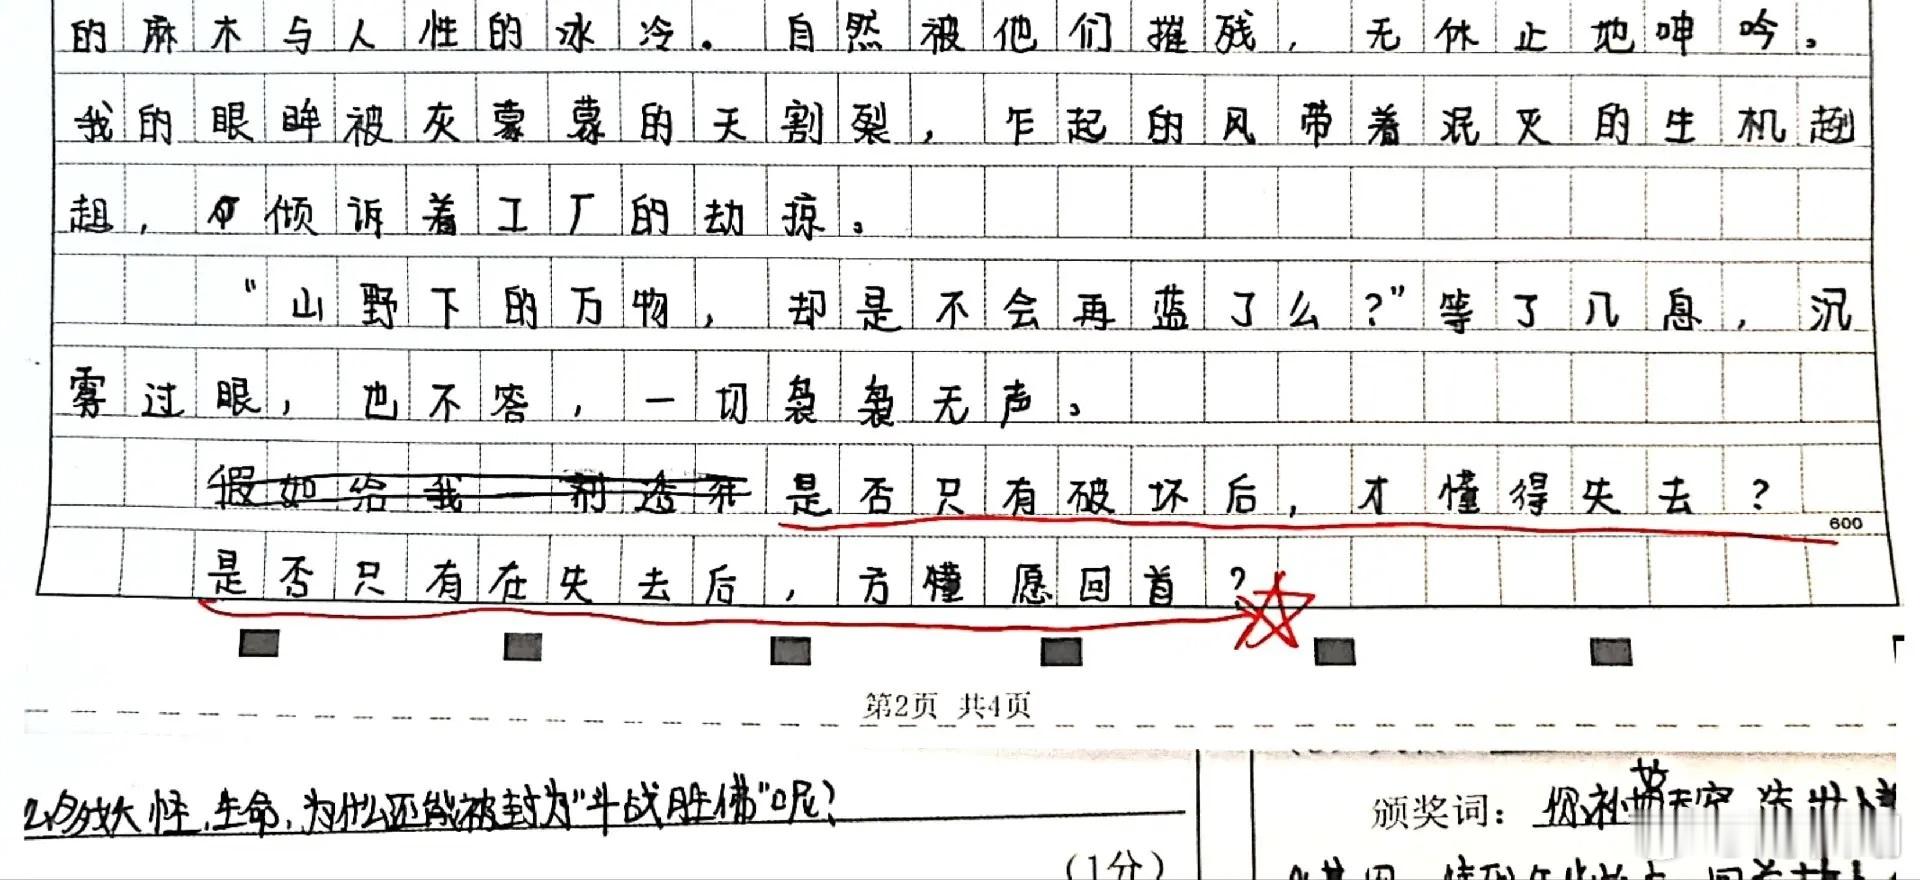 的麻木与人性的冰冷。自然被他们摧残，无休止地呻吟。
我的眼眸被灰蒙蒙的天割裂，乍起的风带着泯灭的生机趔
趄，倾诉着工厂的劫掠。
“山野下的万物，却是不会再蓝了么？”等了几息，沉
雾过眼，也不答，一切袅袅无声。
假如给我一剂透 是否只有破坏后，才懂得失去？
600
是否只有在失去后，方懂愿回首？
第2页 共4页
生命，为什么还能被封为“斗战胜佛”呢？
（1分）
颁奖词：你补蓝天空